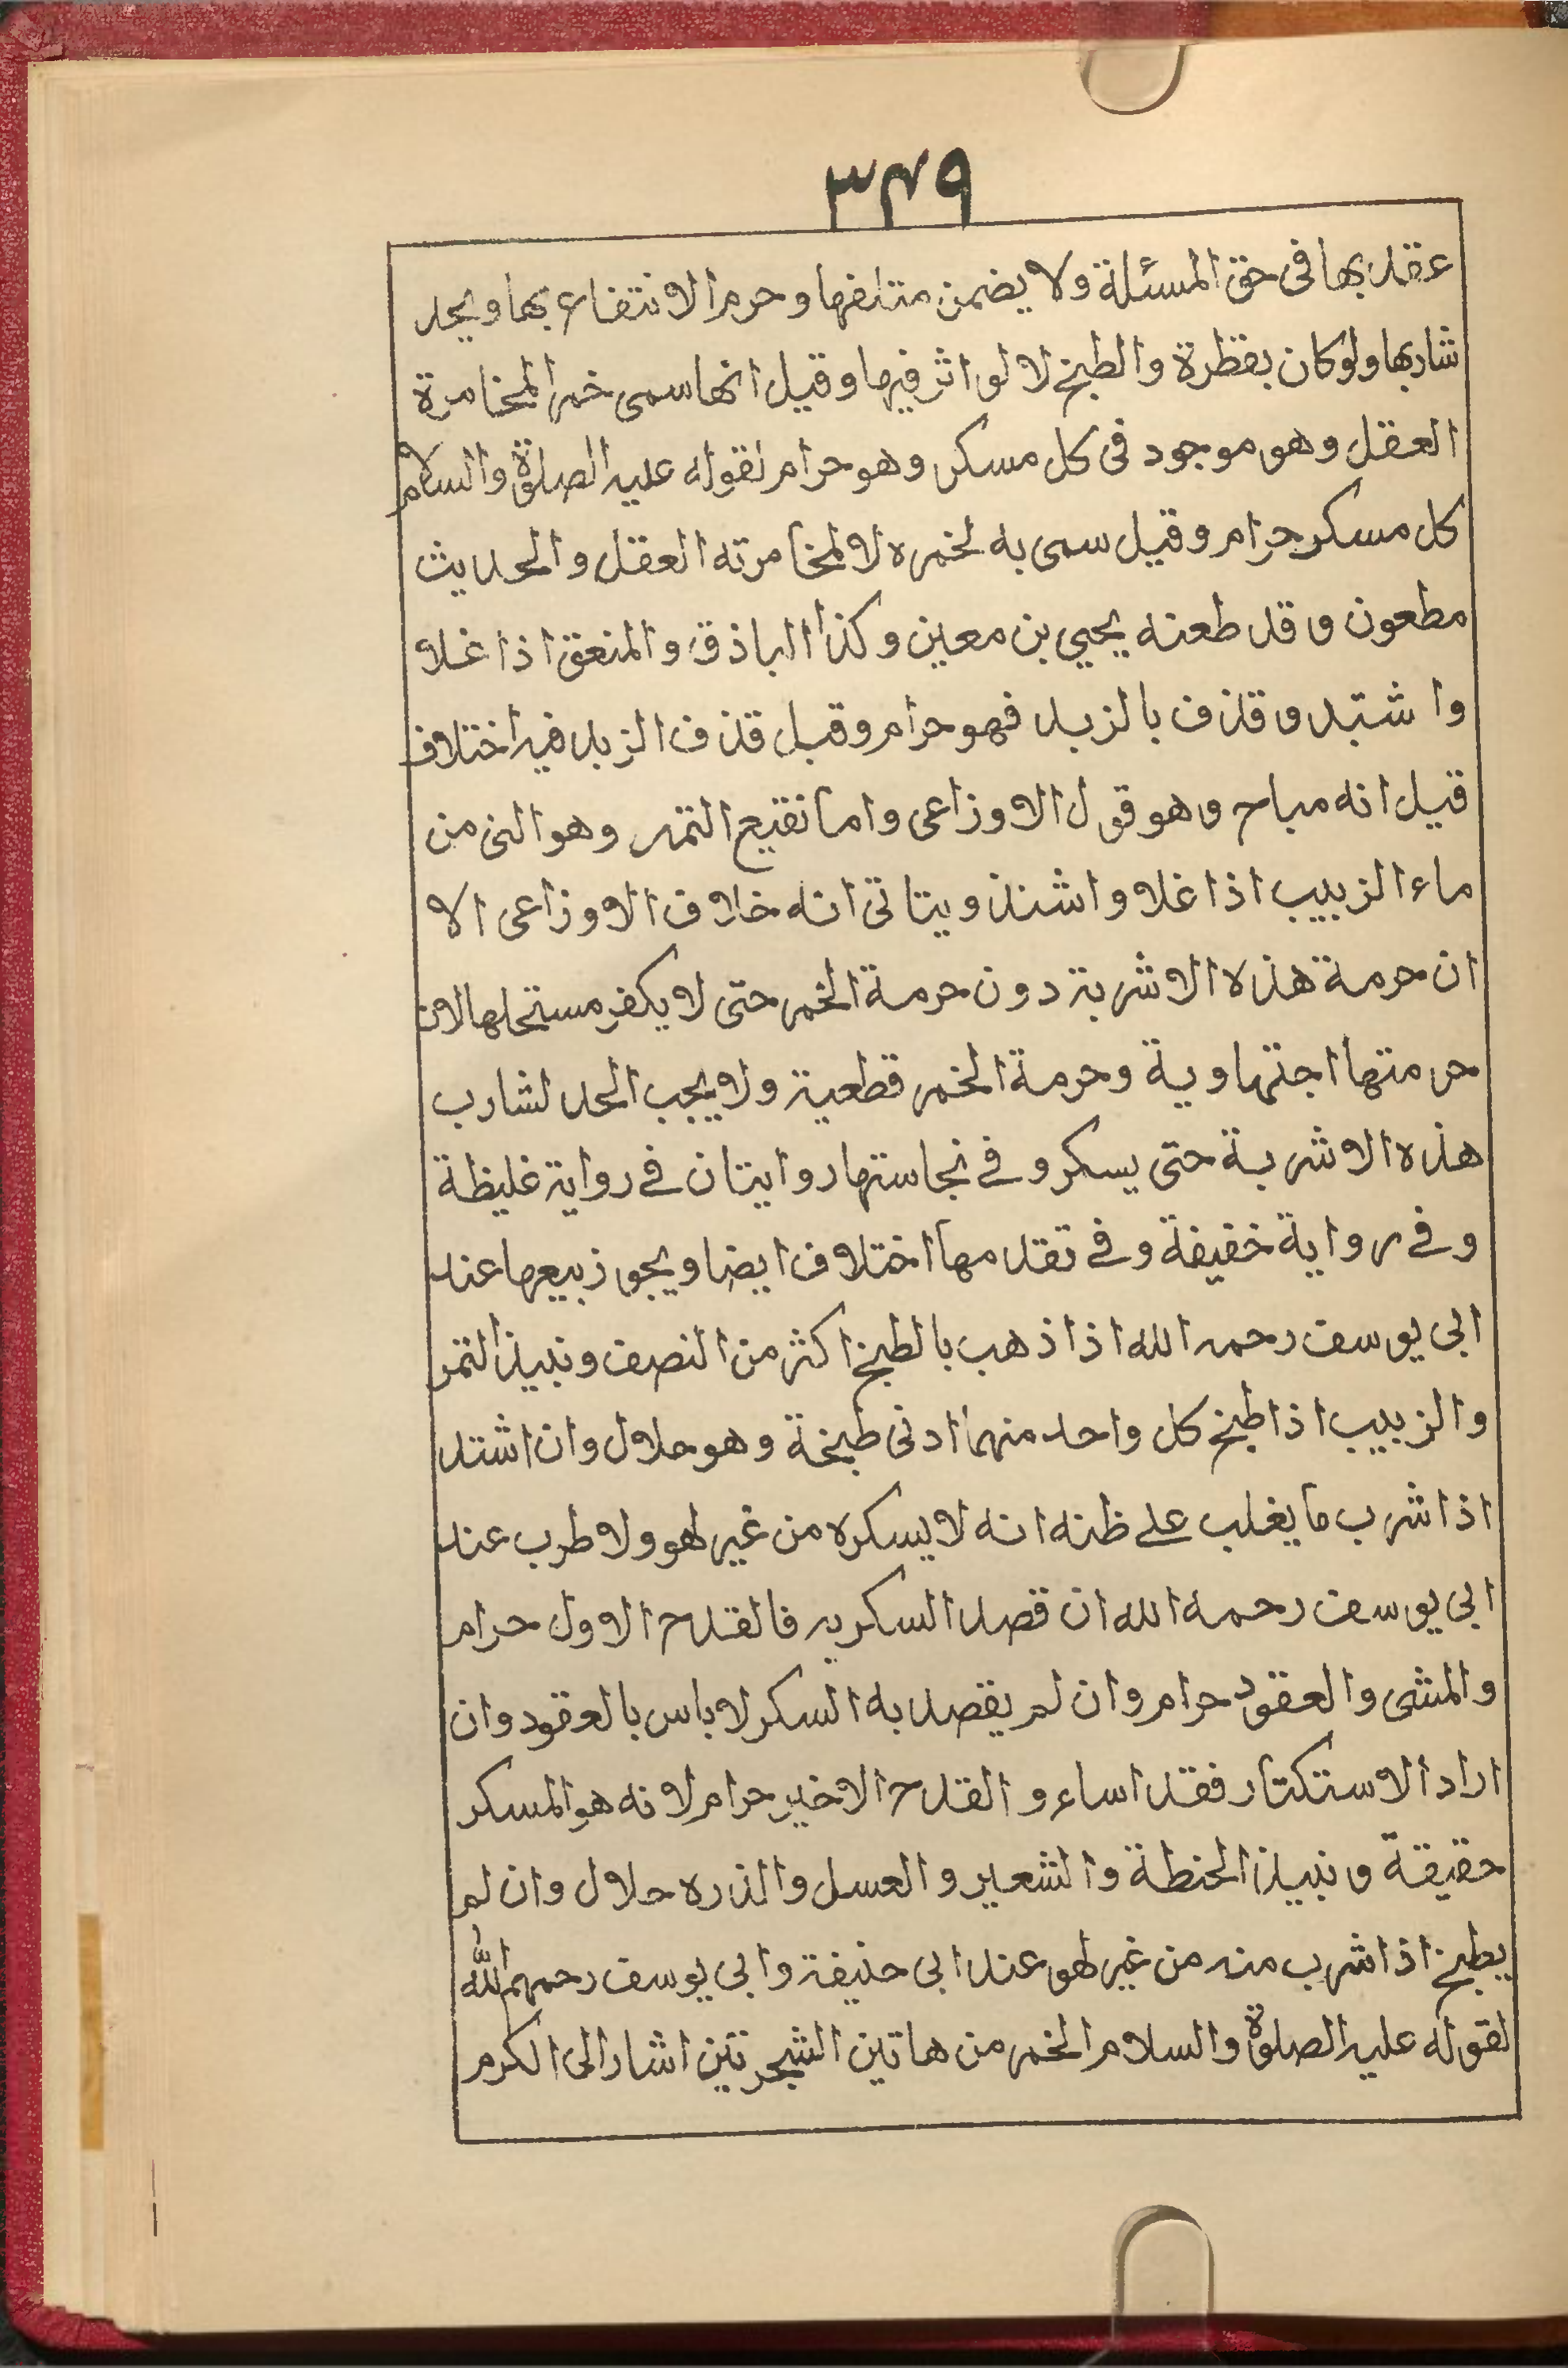 ٣٤٩
عقد بها فى حق المسئلة ولا يضمن متلفها وحرم الانتفاع بها ويحد
شاربها ولو كان بقطرة والطبخ لا لو اثر فيها وقيل انها سمى خمرا لمخامرة
العقل وهو موجود فى كل مسكر وهو حرام لقوله عليه الصلوة والسلام
كل مسكر حرام وقيل سمى به لخمره لا لمخامرته العقل والحديث
مطعون وقد طعنه يحيي بن معين وكذا الباذق والمنعق اذا غلا
واشتد وقذف بالزبد فهو حرام وقبل قذف الزبد فيه اختلاف
قيل انه مباح وهو قول الاوزاعى واما نقيع التمر وهو النى من
ماء الزبيب اذا غلا واشتد ويتاتى انه خلاف الاوزاعى الا
ان حرمة هذه الاشربة دون حرمة الخمر حتى لا يكفر مستحلها لان
حرمتها اجتهاوية وحرمة الخمر قطعية ولا يجب الحد لشارب
هذه الاشربة حتى يسكر وفے نجاستها روايتان فے رواية غليظة
وفے رواية خفيفة وفے تقدمها اختلاف ايضا ويجوز بيعها عند
ابى يوسف رحمه الله اذا ذهب بالطبخ اكثر من النصف ونبيذ التمر
والزبيب اذا طبخ كل واحد منهما ادنى طبخة وهو حلال وان اشتد
اذا شرب ما يغلب علے ظنه انه لا يسكره من غير لهو ولا طرب عند
ابى يوسف رحمه الله ان قصد السكر به فالقدح الاول حرام
والمشى والعقود حرام وان لم يقصد به السكر لا باس بالعقود وان
اراد الاستكتار فقد اساء والقدح الاخير حرام لانه هو المسكر
حقيقة ونبيذ الحنطة والشعير والعسل والذره حلال وان لم
يطبخ اذا شرب منه من غير لهو عند ابى حنيفة وابى يوسف رحمهم الله
لقوله عليه الصلوة والسلام الخمر من هاتين الشجرتين اشار الى الكرم